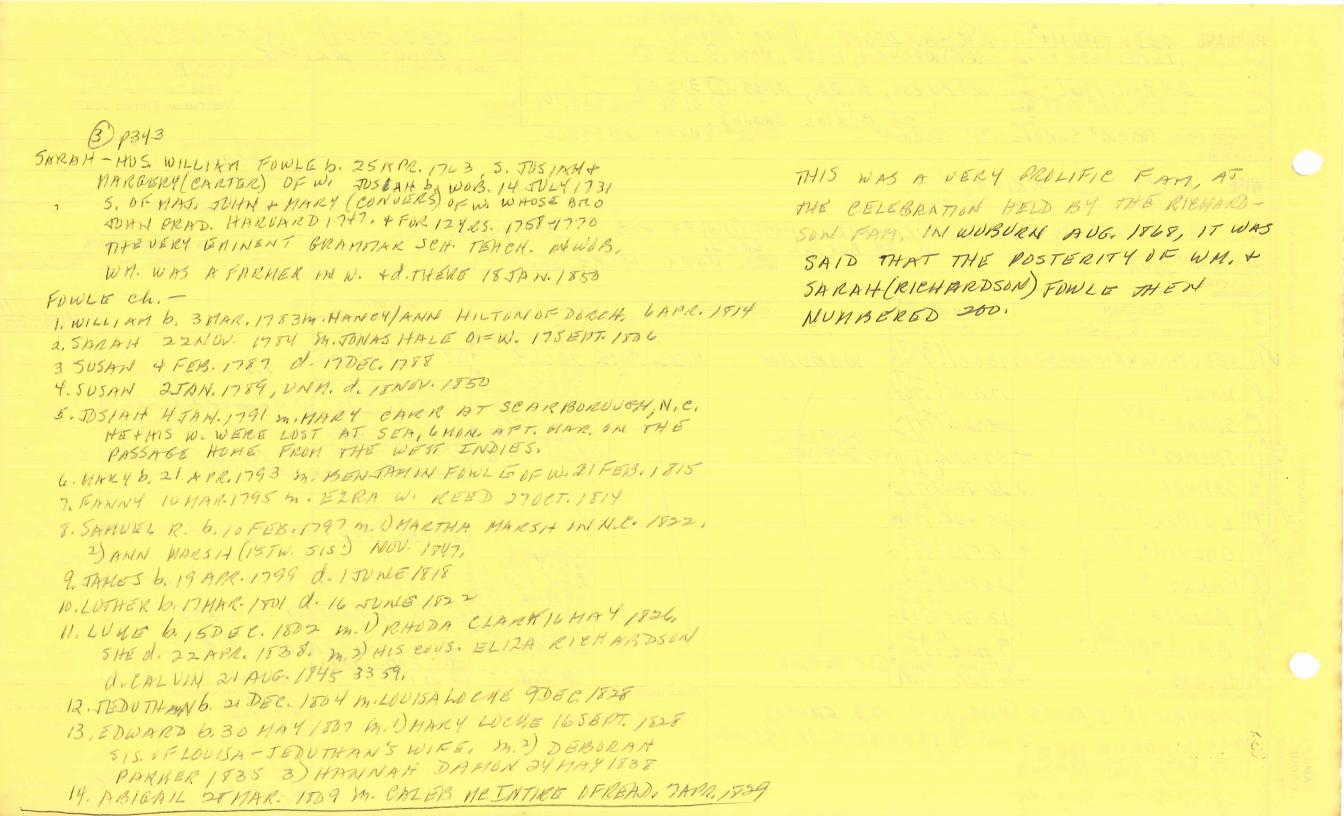 ③ p343
SARAH - HUS. WILLIAM FOWLE b. 25 APR. 1763, S. JOSIAH +
MARGERY (CARTER) OF W. JOSIAH b. WOB. 14 JULY 1731
S. OF MAJ. JOHN + MARY (CONVERS) OF W. WHOSE BRO
JOHN GRAD. HARVARD 1747. + FOR 12 YRS. 1758-1770
THE VERY EMINENT GRAMMAR SCH. TEACH. WOB.
WM. WAS A FARMER IN W. + d. THERE 18 JAN. 1850
FOWLE ch. -
1. WILLIAM b. 3 MAR. 1783 m. NANCY/ANN HILTON OF DORCH. 6 APR. 1814
2. SARAH 22 NOV. 1784 m. JONAS HALE OF W. 17 SEPT. 1806
3 SUSAN 4 FEB. 1787 d. 17 DEC. 1788
4. SUSAN 2 JAN. 1789, UNM. d. 18 NOV. 1850
5. JOSIAH 4 JAN. 1791 m. MARY CARR AT SCARBOROUGH, N.C.
HE + HIS W. WERE LOST AT SEA, 6 MON. AFT. MAR. ON THE
PASSAGE HOME FROM THE WEST INDIES.
6. MARY b. 21 APR. 1793 m. BENJAMIN FOWLE OF W. 21 FEB. 1815
7. FANNY 16 MAR. 1795 m. EZRA W. REED 27 OCT. 1814
8. SAMUEL R. b. 10 FEB. 1797 m. 1) MARTHA MARSH IN N.C. 1822.
2) ANN MARSH (1ST W. SIS.) NOV. 1847.
9. JAMES b. 19 APR. 1799 d. 1 JUNE 1818
10. LUTHER b. 17 MAR. 1801 d. 16 JUNE 1822
11. LUKE b. 15 DEC. 1802 m. 1) RHODA CLARK 16 MAY 1826.
SHE d. 22 APR. 1838. m. 2) HIS COUS. ELIZA RICHARDSON
d. CALVIN 21 AUG. 1845 3359.
12. JEDUTHAN b. 21 DEC. 1804 m. LOUISA LOCKE 9 DEC. 1828
13. EDWARD b. 30 MAY 1807 m. 1) MARY LOCKE 16 SEPT. 1828
SIS. OF LOUISA - JEDUTHAN'S WIFE. m. 2) DEBORAH
PARKER 1835 3) HANNAH DAMON 24 MAY 1838
14. ABIGAIL 28 MAR. 1809 m. CALEB McINTIRE OF READ. 7 APR. 1829
THIS WAS A VERY PROLIFIC FAM, AT
THE CELEBRATION HELD BY THE RICHARD-
SON FAM. IN WOBURN AUG. 1868, IT WAS
SAID THAT THE POSTERITY OF WM. +
SARAH (RICHARDSON) FOWLE THEN
NUMBERED 200.